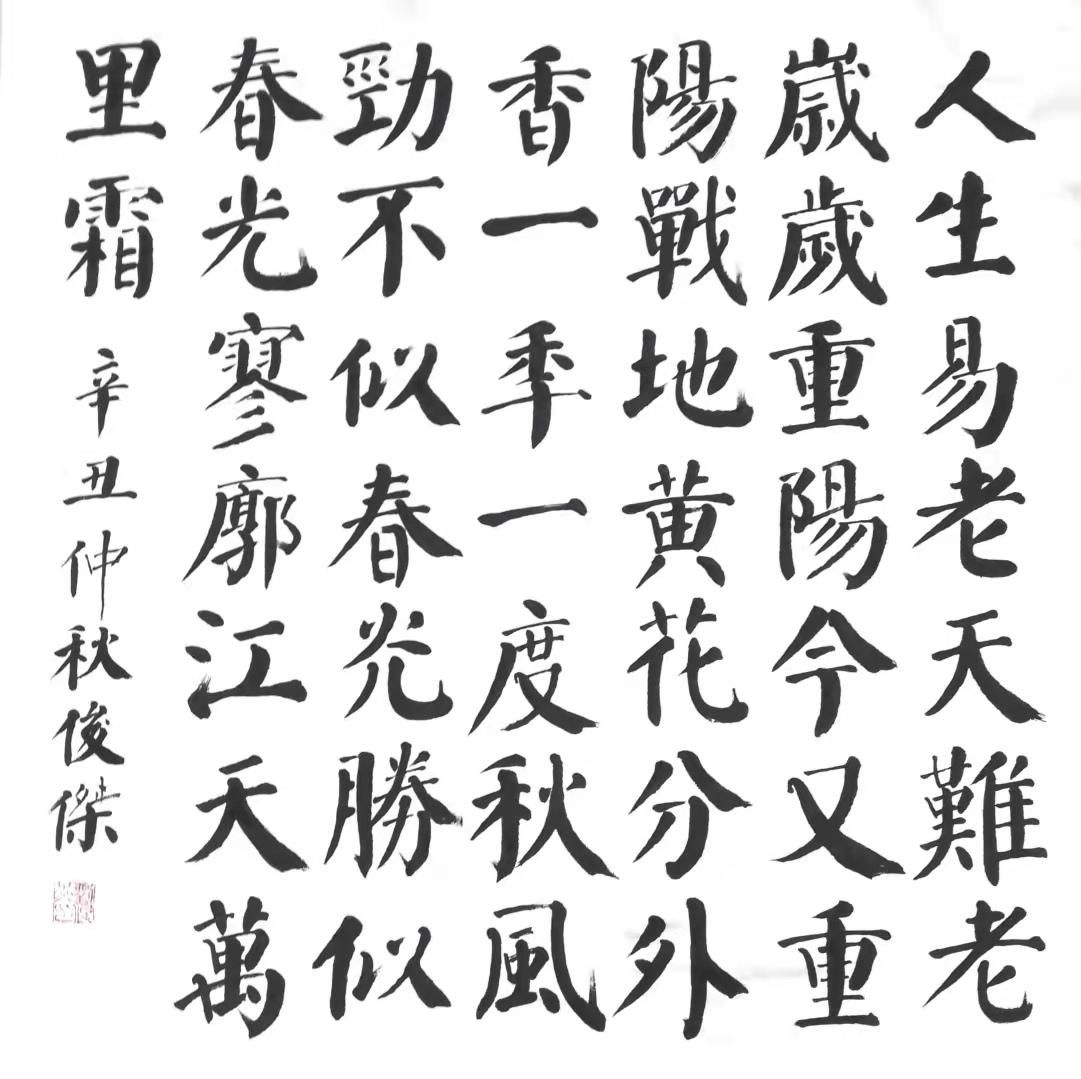 人生易老天難老
嵗歲重陽今又重
陽戰地黄花分外
香一秊一度秋風
勁不似春光勝似
春光寥廓江天萬
里霜
辛丑仲秋俊傑